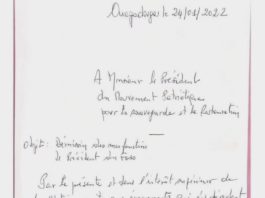 Ouagadougou le 24/01/2022
A Monsieur le Président
du Mouvement Patriotique
pour la sauvegarde et la Restauration
Objet : Démission des mes fonctions
de Président du Faso
Par la présente et dans l'intérêt supérieur de
la